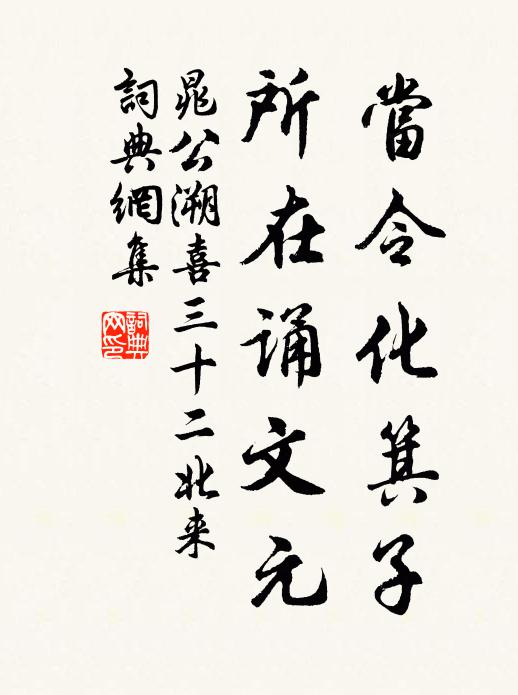 當令化箕子
所在誦文元
晁公溯喜三十二北来
詞典網集
詞典网印